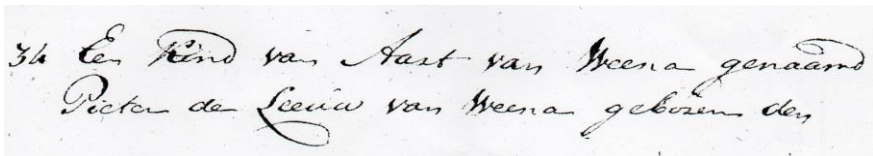 34 Een Kind van Aart van Weena genaamd
Pieter de Leeuw van Weena geboren den